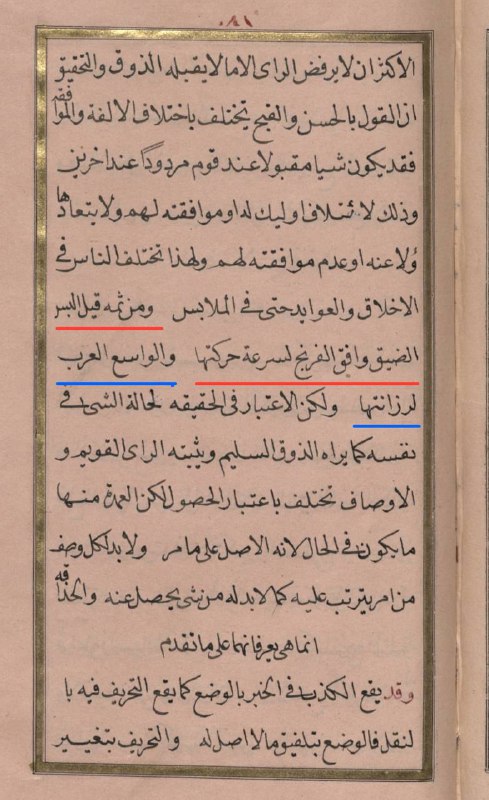 ١٨١
الاكثر ان لا يرفض الراى الاما لا يقبله الذوق والتحقيق
ان القول بالحسن والقبح يختلف باختلاف الالفة والموافقه
فقد يكون شيا مقبولا عند قوم مردودًا عند اخرين
وذلك لائتلاف اوليك له او موافقته لهم ولابتعاد هاؤلا عنه
او عدم موافقته لهم ولهذا تختلف الناس فى
الاخلاق والعوايد حتى فى الملابس ومن ثمه قيل اللبس
الضيق وافق الفرنج لسرعة حركتها والواسع العرب
لرزانتها ولكن الاعتبار فى الحقيقه لحالة الشى فى
نفسه كما يراه الذوق السليم ويثبته الراى القويم و
الاوصاف تختلف باعتبار الحصول لكن العمدة منها
ما يكون فى الحال لانه الاصل على ما مر ولا بد لكل وصف
من امر يترتب عليه كما لا بد له من شى يحصل عنه والحذاقه
انما هى بعرفانها على ما تقدم
وقد يقع الكذب فى الخبر بالوضع كما يقع التحريف فيه با
لنقل فالوضع بتلفيق ما لا اصل له والتحريف بتغيير